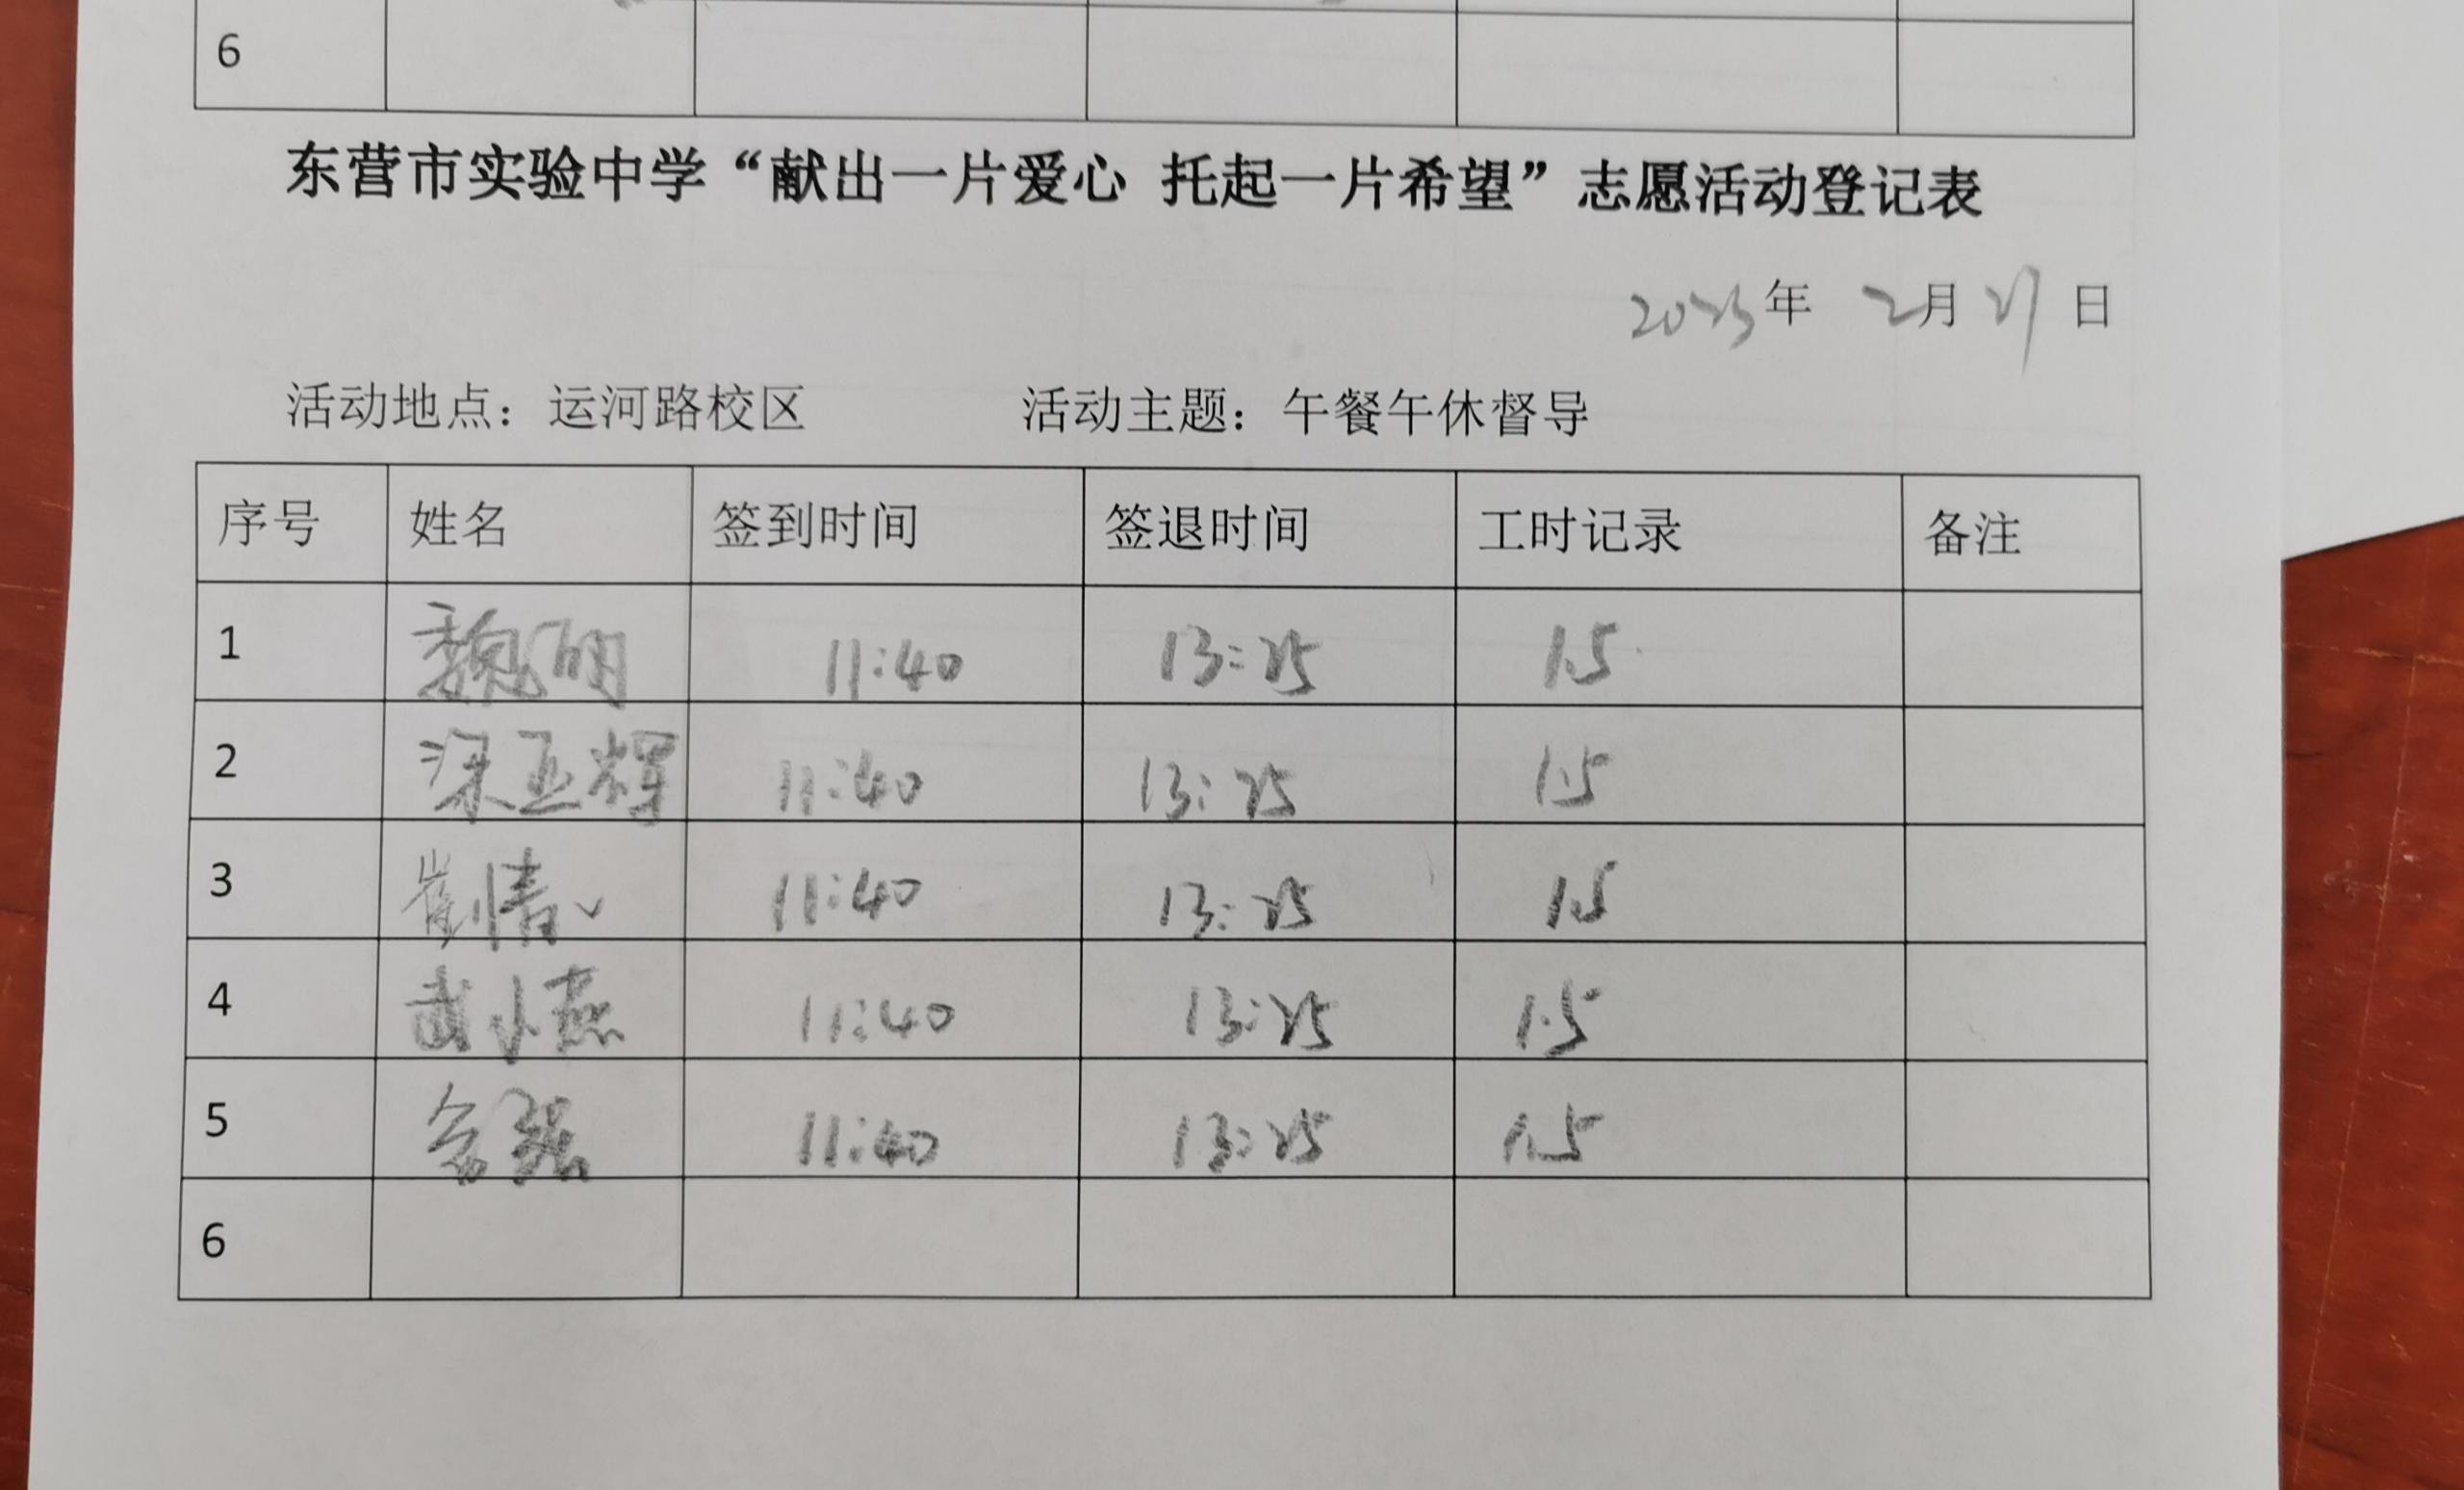 6
东营市实验中学“献出一片爱心 托起一片希望”志愿活动登记表
2023年 2月 21日
活动地点：运河路校区 活动主题：午餐午休督导
序号 姓名 签到时间 签退时间 工时记录 备注
1 魏明 11:40 13:25 1.5
2 梁亚辉 11:40 13:25 1.5
3 崔倩 11:40 13:25 1.5
4 武小燕 11:40 13:25 1.5
5 11:40 13:25 1.5
6